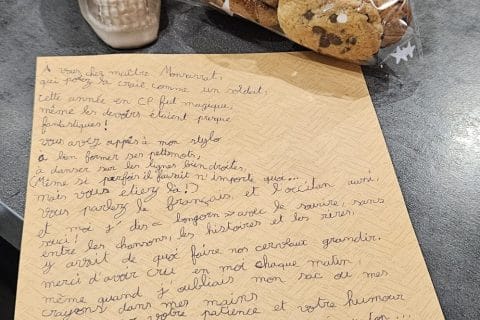 A vous cher maître Monrarrat,
qui portez la craie comme un soldat,
cette année en CP fut magique,
même les devoirs étaient presque
fantastiques!
vous avez appris à mon stylo
a bien former ses petits mots,
à danser sur les lignes bien droites,
(Même si parfois il faisait n'importe quoi...
mais vous étiez là!)
vous parlez le français, et l'occitan aussi,
et moi j' dis « » avec le sourire, sans
souci!
entre les chansons, les histoires et les rires,
y avait de quoi faire nos cerveaux grandir.
merci d'avoir cru en moi chaque matin,
même quand j'oubliais mon sac ou mes
crayons dans mes mains
votre patience et votre humour